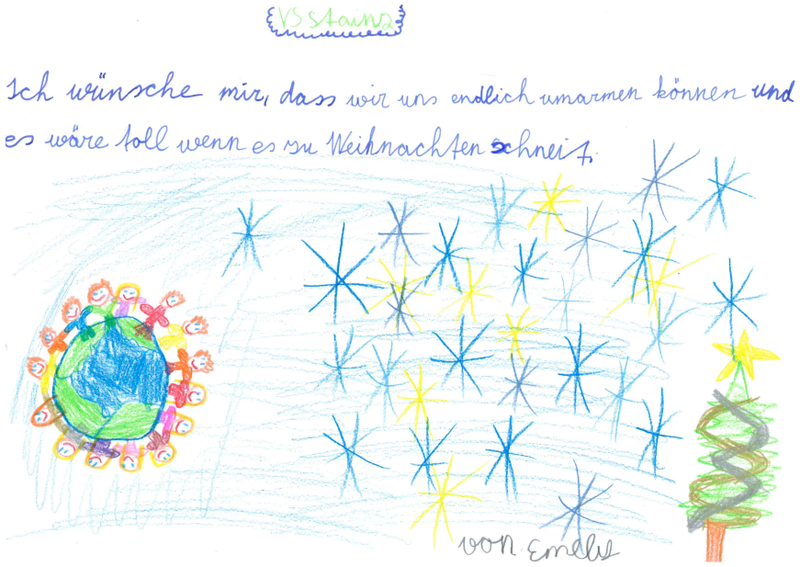 VS Stainz
Ich wünsche mir, dass wir uns endlich umarmen können und
es wäre toll wenn es zu Weihnachten schneit.
von